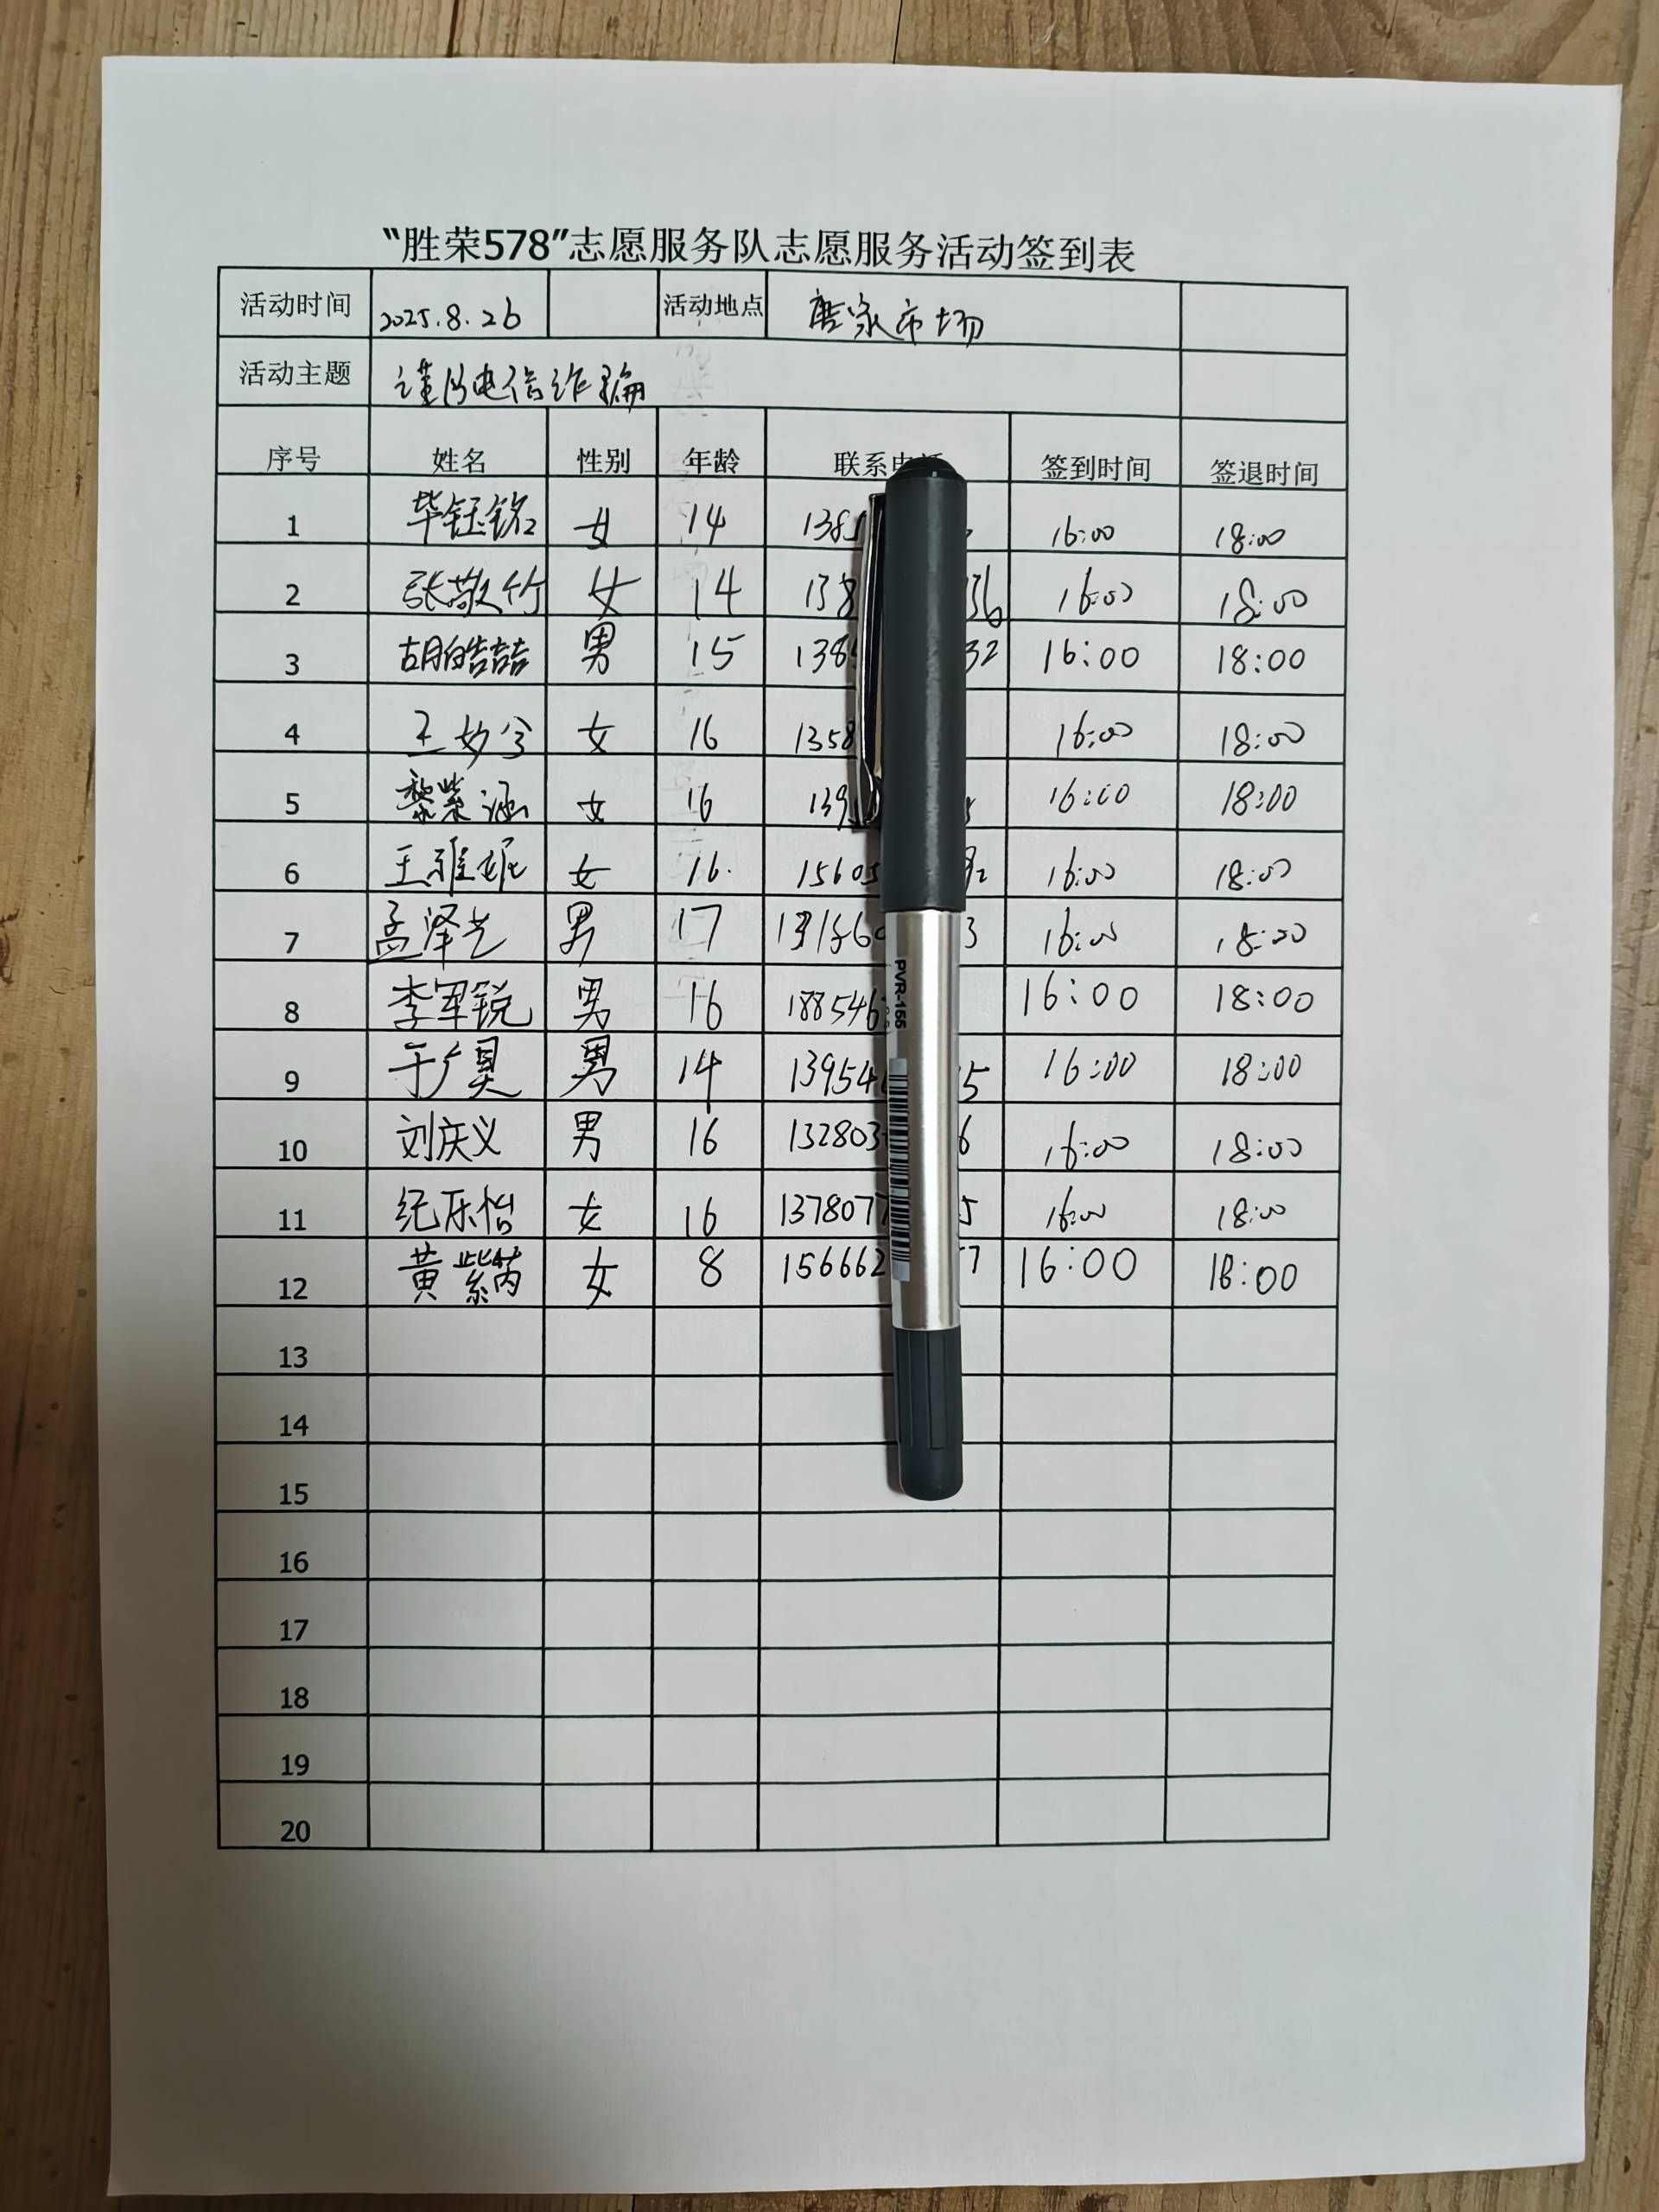 “胜荣578”志愿服务队志愿服务活动签到表
活动时间 2025.8.26 活动地点 唐家市场
活动主题 谨防电信诈骗
序号 姓名 性别 年龄 联系电 签到时间 签退时间
1 毕钰铭 女 14 1385 16:00 18:00
2 张敬竹 女 14 138 36 16:00 18:00
3 胡皓喆 男 15 138 32 16:00 18:00
4 王妙兮 女 16 1358 16:00 18:00
5 黎紫涵 女 16 139 16:00 18:00
6 王雅妮 女 16. 15605 2 16:00 18:00
7 孟泽 男 17 3 16:00 18:00
8 李军锐 男 16 188546 16:00 18:00
9 于广昊 男 14 13954 5 16:00 18:00
10 刘庆义 男 16 132803 6 16:00 18:00
11 纪乐怡 女 16 137807 5 16:00 18:00
12 黄紫芮 女 8 156662 7 16:00 18:00
13
14
15
16
17
18
19
20
PVR-155